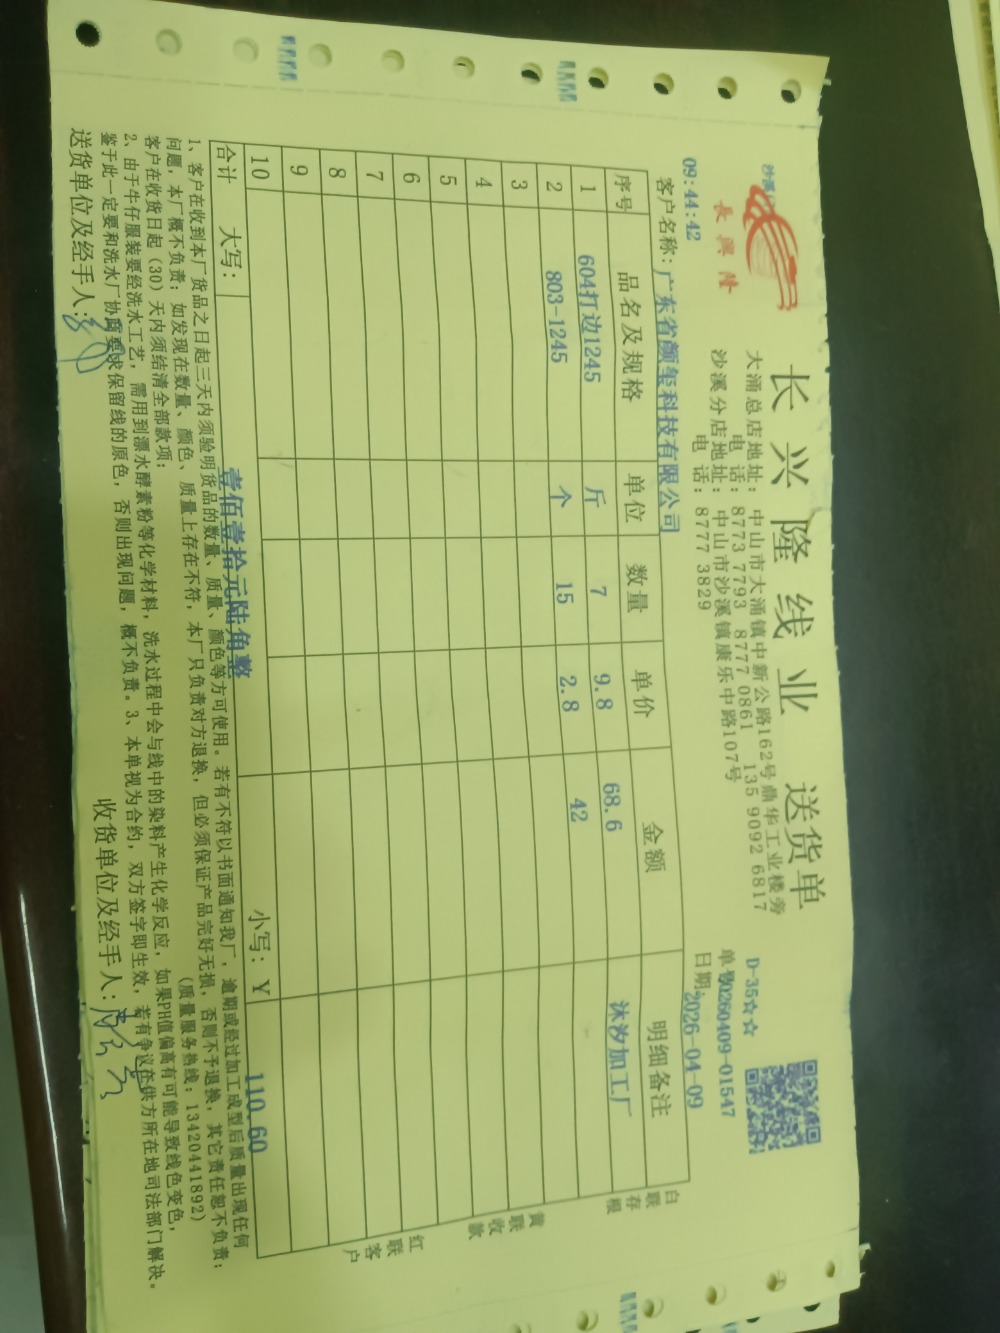 沙溪
長興隆
长兴隆线业 送货单
大涌总店地址:中山市大涌镇中新公路162号鼎华工业楼旁
电话:8773 7793 8777 0861 135 9092 6817
沙溪分店地址:中山市沙溪镇康乐中路107号
电话:8777 3829
D-35☆☆
单号0260409-01547
日期:2026-04-09
09:44:42
客户名称:广东省颜玺科技有限公司
序号 品名及规格 单位 数量 单价 金额 明细备注
1 604打边1245 斤 7 9.8 68.6 沐汐加工厂
2 803-1245 个 15 2.8 42
3
4
5
6
7
8
9
10
合计 大写: 壹佰壹拾元陆角整 小写:Y 110.60
白联存根
黄联收款
红联客户
1、客户在收到本厂货品之日起三天内须验明货品的数量、质量、颜色等方可使用。若有不符以书面通知我厂,逾期或经过加工成型后质量出现任何
问题,本厂概不负责;如发现在数量、颜色、质量上存在不符,本厂只负责对方退换,但必须保证产品完好无损,否则不予退换,其它责任恕不负责;
客户在收货日起(30)天内须结清全部款项; (质量服务热线:13420441892)
2、由于牛仔服装要经洗水工艺,需用到漂水酵素粉等化学材料,洗水过程中会与线中的染料产生化学反应,如果PH值偏高有可能导致线色变色,
鉴于此一定要和洗水厂协商要求保留线的原色,否则出现问题,概不负责。3、本单视为合约,双方签字即生效,若有争议在供方所在地司法部门解决。
送货单位及经手人:
收货单位及经手人: